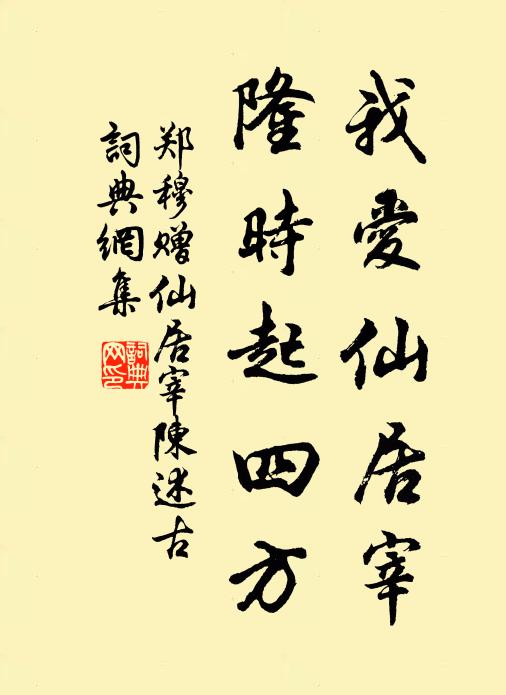 我愛仙居宰
隆時起四方
郑穆赠仙居宰陳述古
詞典網集
詞典网印